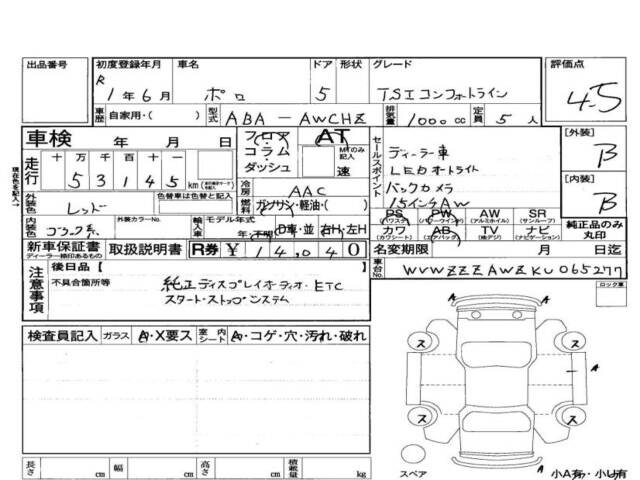 出品番号 初度登録年月 車名 ドア 形状 グレード 評価点
R 1年6月 ポロ 5 TSIコンフォートライン 4.5
車歴 自家用・( ) 型式 ABA-AWCHZ 排気量 1000cc 定員 5人
車検 年 月 日 フロア コラム ダッシュ AT MTのみ記入 速
走行 十 万 千 百 十 一
53145 km
冷房 AAC
外装色 レッド 色替車は色替と記入 燃料 ガソリン・軽油・( )
内装色 ブラック系 外装カラーNo. 輸入車 モデル年式 年・不明 D車・並 右H・左H
新車保証書 ディーラー捺印あるもの 取扱説明書 R券 ¥14,040
セールスポイント
ディーラー車
LEDオートライト
バックカメラ
15インチAW
PS (パワステ) PW (パワーウインドウ) AW (アルミホイル) SR (サンルーフ)
カワ (カワシート) AB (エアバッグ) TV (純正) ナビ (ナビゲーション)
純正品のみ丸印
[外装] B
[内装] B
名変期限 月 日迄
車台No. WVWZZZAWZKU065277
注意事項 後日品【 】
不具合箇所等
純正ディスプレイオーディオ・ETC
スタート・ストップシステム
ロック車
検査員記入 ガラス A・X要ス 室内シート A・コゲ・穴・汚れ・破れ
A
ス ス
A A
ス ス
A
スペア
小A有・小U有
長さ cm 幅 cm 高さ cm 積載量 kg
現在色を記入→